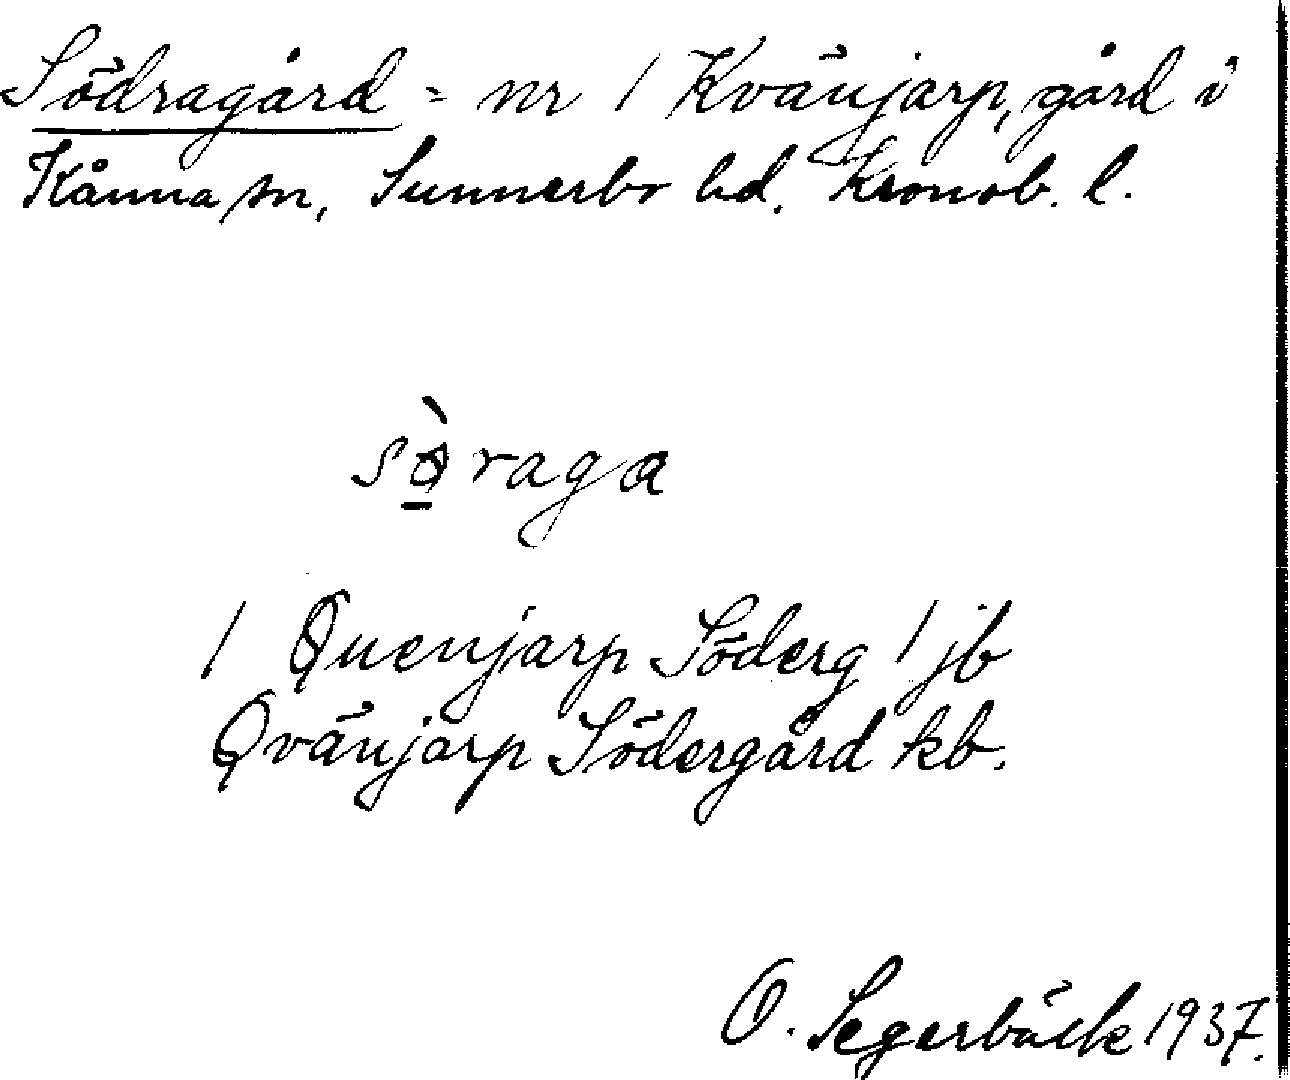 Södragård = nr 1 Kvänjarp, gård i
Kånna sn, Sunnerbo hd. Kronob. l.
sø̠̀raga
1 Quenjarp Söderg 1 jb
Qvänjarp Södergård kb.
O. Segerbäck 1937.